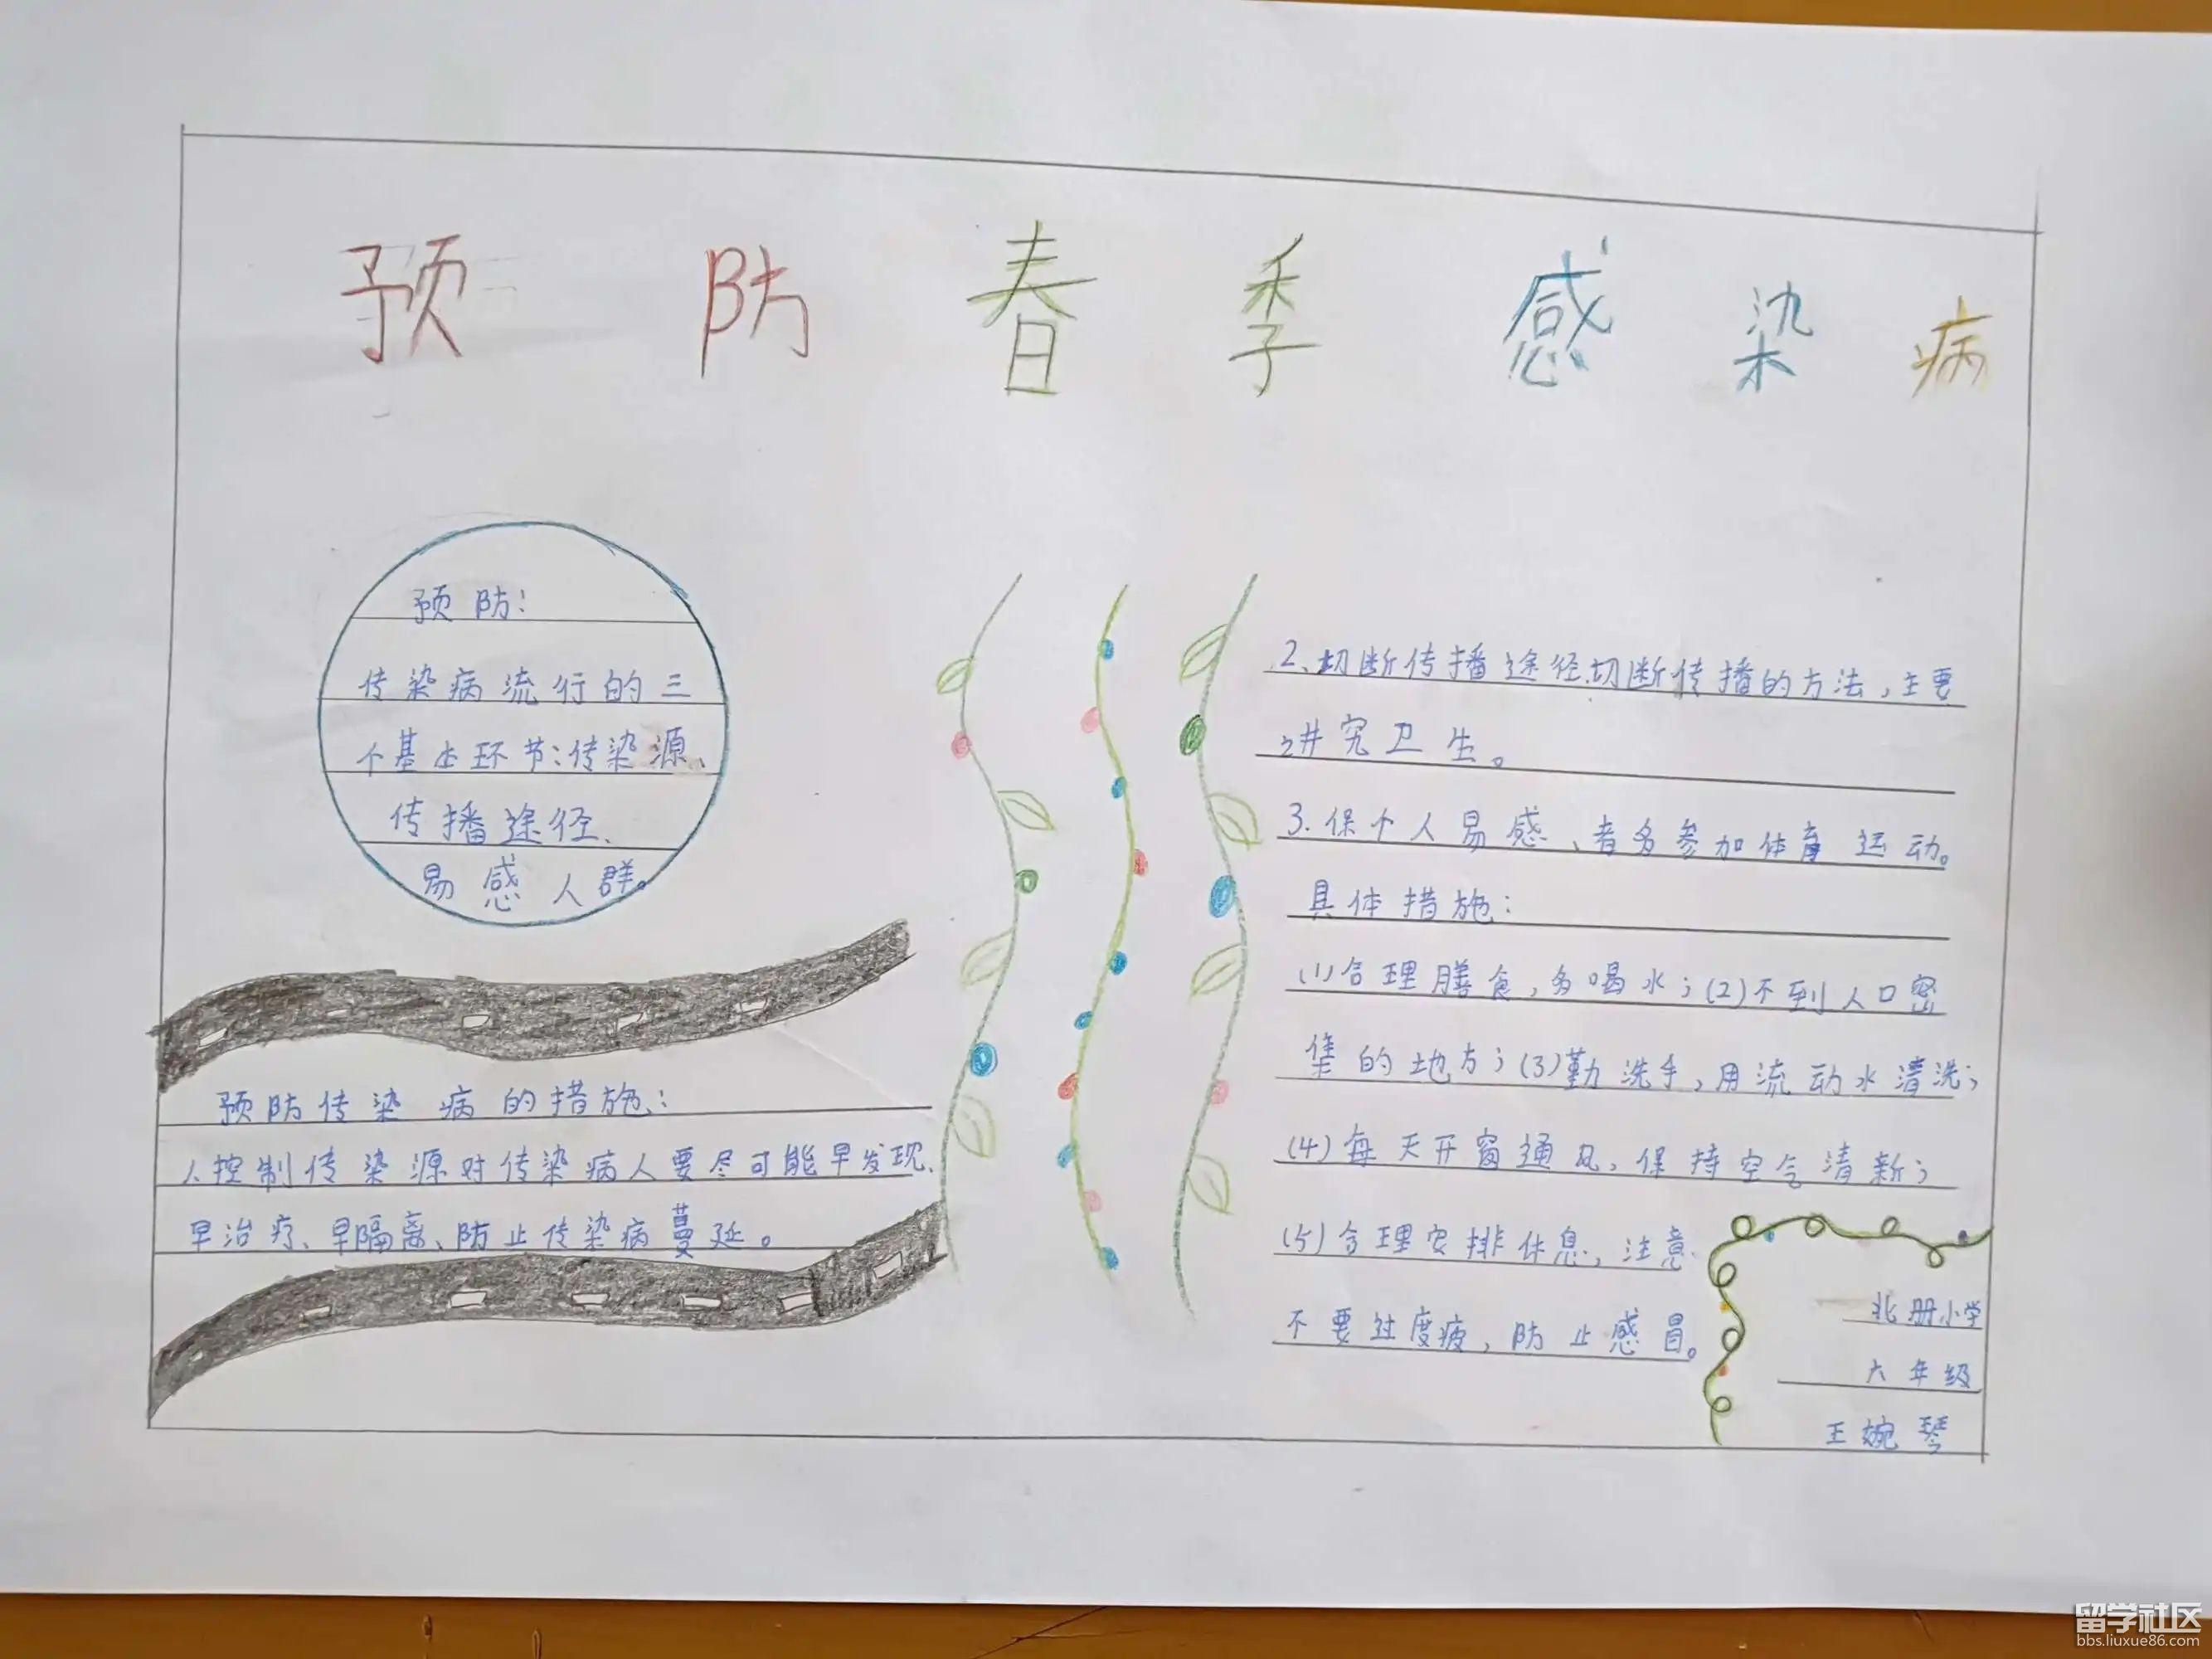 预防春季感染病
预防：
传染病流行的三
个基本环节：传染源、
传播途径、
易感人群。
预防传染病的措施：
1.控制传染源对传染病人要尽可能早发现、
早治疗、早隔离、防止传染病蔓延。
2、切断传播途径.切断传播的方法，主要
讲究卫生。
3.保个人易感、者多参加体育运动。
具体措施：
(1)合理膳食，多喝水；(2)不到人口密
集的地方；(3)勤洗手，用流动水清洗；
(4)每天开窗通风，保持空气清新；
(5)合理安排休息，注意
不要过度疲，防止感冒。
北册小学
六年级
王婉琴
留学社区
bbs.liuxue86.com